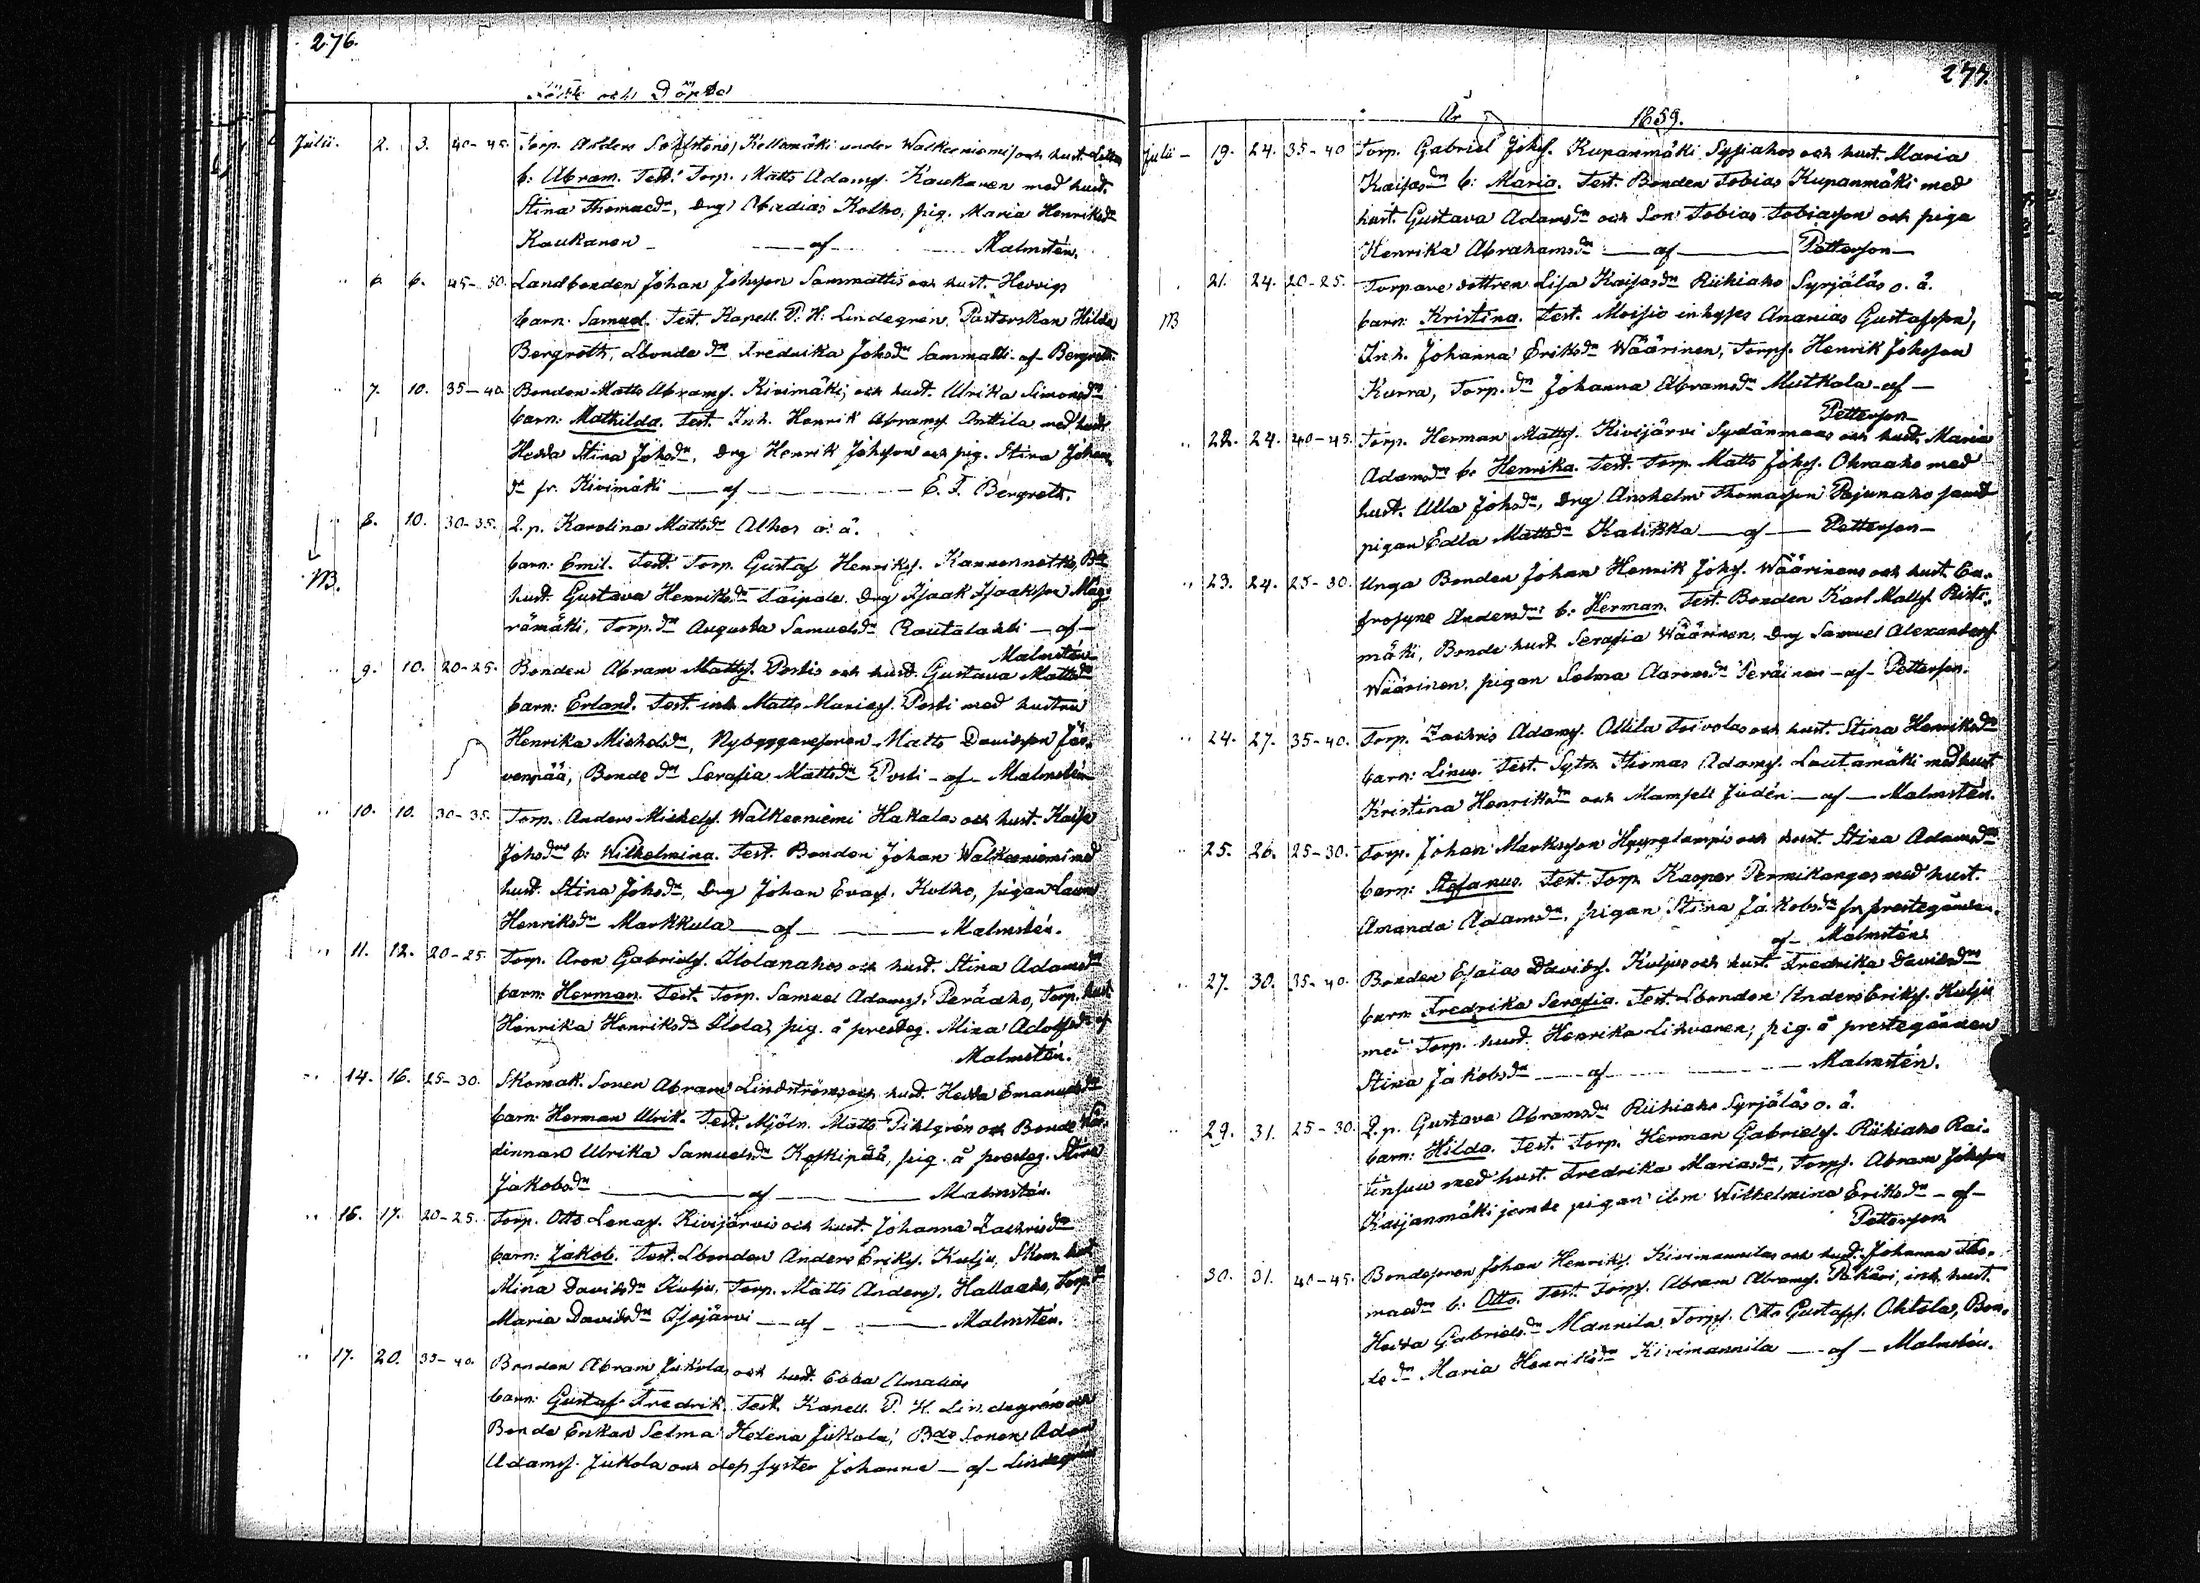 276.
Födde och Döpta
Julii. 2. 3. 40-45. Torp. Anders Kellomäki under Walkeniemi och hust.
b: Abram. Test. Torp. Matts Adamss. Kaukanen med hust.
Stina Thomasdr, drg Abedias Kolho, pig. Maria Henriksdr
Kaukanen — af — Malmstén.
" 6. 6. 45-50. Landbonden Johan Johsson Sammattis och hust. Hedvigs
barn: Samuel. Test. Kapell. P. H. Lindegren, Pastorskan Hilda
Bergroth, Lbonde dr Fredrika Johsdr Sammatti - af - Bergroth.
" 7. 10. 35-40. Bonden Matts Abramss. Kivimäki, och hust. Ulrika Simonsdrs
barn: Mathilda. Test. Inh. Henrik Abramss. Anttila med hust.
Hedda Stina Johsdr, drg Henrik Johsson och pig. Stina Johans
dr fr. Kivimäki — af — E. F. Bergroth.
" 8. 10. 30-35. Q.p. Karolina Mattsdr Alhos o. ä.
NB. barn: Emil. Test. Torp. Gustaf Henrikss. Kannonnotko, Bde
hust. Gustava Henriksdr Taipale. Drg Isaak Isaaksson Mäy-
rämäki, Torp. dr Augusta Samuelsdr Rautalahti — af —
Malmstén
" 9. 10. 20-25. Bonden Abram Mattss. Postis och hust. Gustava Mattsdrs
barn: Erland. Test. inh. Matts Mariass. Posti med hustru
Henrika Michelsdr, Nybyggaresonen Matts Davidsson Jär-
venpää, Bonde dr Serafia Mattsdr Posti - af - Malmstén
" 10. 10. 30-35. Torp. Anders Michelss. Walkeeniemi Hakalas och hust. Kaisa
Johsdrs b: Wilhelmina. Test. Bonden Johan Walkeeniemi med
hust. Stina Johsdr, Drg Johan Evass. Kolho, pigan
Henriksdr Markkula — af — Malmstén.
" 11. 12. 20-25. Torp. Aron Gabrielss. Ilolanahos och hust. Stina Adamsdrs
barn: Herman. Test. Torp. Samuel Adamss. Peräaho, Torp. hust.
Henrika Henriksdr Ilola, pig. å presteg. Mina Adolfsdr af
Malmstén.
" 14. 16. 25-30. Skomak. Sonen Abram Lindströms och hust. Hedda Emanuelsdrs
barn: Herman Ulrik. Test. Mjöln. Matts Pihlgrén och Bonde vär-
dinnan Ulrika Samuelsdr Koskipää, pig. å presteg. Stina
Jakobsdr — af — Malmstén.
" 16. 17. 20-25. Torp. Otto Lenass. Kivijärvis och hust. Johanna Zachrisdrs
barn: Jakob. Test. Lbonden Anders Erikss. Kulju, Skom. hust.
Mina Davidsdr Kulju, Torp. Matts Anderss. Hallaaho, Torp. dr
Maria Davidsdr Isojärvi — af — Malmstén.
" 17. 20. 35-40. Bonden Abram Jukola och hust. Ebba Amalias
barn: Gustaf Fredrik. Test. Kapell. P. H. Lindegrén och
Bonde Enkan Selma Helena Jukola, Bde Sonen Adam
Adamss. Jukola och dess syster Johanna — af — Lindegrén
277.
År 1859.
Julii - 19. 24. 35-40 Torp. Gabriel Johss. Kupanmäki Sysiahos och hust. Maria
Kaisasdrs b: Maria. Test. Bonden Tobias Kupanmäki med
hust. Gustava Adamsdr och Son Tobias Tobiasson och piga
Henrika Abrahamsdr — af — Petterson —
21. 24. 20-25. Torpare dottren Lisa Kaisasdr Riihiaho Syrjäläs o. ä.
NB barn: Kristina. Test. Moisio inhyses Ananias Gustafsson,
Inh. Johanna Eriksdr Wäärinen, Torps. Henrik Johsson
Kurra, Torp. dr Johanna Abramsdr Mutkala - af —
Petterson —
" 22. 24. 40-45. Torp. Herman Mattss. Kivijärvi Sydänmaas och hust. Maria
Adamsdrs b: Henrika. Test. Torp. Matts Johss. Ohraaho med
hust. Ulla Johsdr, drg Anshelm Thomasson Pajunaho samt
pigan Edla Mattsdr Kalikka — af — Petterson —
" 23. 24. 25-30. Unga Bonden Johan Henrik Johss. Wäärinens och hust. Eu-
frosyne Andersdrs b: Herman. Test. Bonden Karl Mattss. Risti-
mäki, Bonde hust. Serafia Wäärinen, Drg Samuel Alexanderss.
Wäärinen, pigan Selma Aaronsdr Peräinen - af - Petterson.
" 24. 27. 35-40. Torp. Zachris Adamss. Attila Toivolas och hust. Stina Henriksdrs
barn: Linus. Test. Sytn. Thomas Adamss. Lautamäki med hust.
Kristina Henriksdr och Mamsell Judén — af — Malmstén.
" 25. 26. 25-30. Torp. Johan Marksson Hyyrylampis och hust. Stina Adamsdrs
barn: Stefanus. Test. Torp. Kasper Permikangas med hust.
Amanda Adamsdr, pigan Stina Jakobsdr fr. prestegården.
af - Malmstén.
" 27. 30. 35-40. Bonden Esaias Davidss. Kuljus och hust. Fredrika Davidsdrs
barn: Fredrika Serafia. Test. Lbonden Anders Erikss. Kulju
med Torp. hust. Henrika Lihvanen, pig. å prestegården
Stina Jakobsdr — af — Malmstén.
" 29. 31. 25-30. Q.p. Gustava Abramsdr Riihiaho Syrjäläs o. ä.
barn: Hilda. Test. Torp. Herman Gabrielss. Riihiaho Rai-
tinsuu med hust. Fredrika Mariasdr, Torps. Abram Johsson
Kasjanmäki jemte pigan ibm Wilhelmina Eriksdr - af -
Petterson
30. 31. 40-45. Bondesonen Johan Henrikss. Kivimannilas och hust. Johanna Tho-
masdrs b: Otto. Test. Torps. Abram Abramss. Pakari, inh. hust.
Hedda Gabrielsdr Mannila, Torps. Otto Gustafss. Ahtola, Bon-
de dr Maria Henriksdr Kivimannila — af — Malmstén.